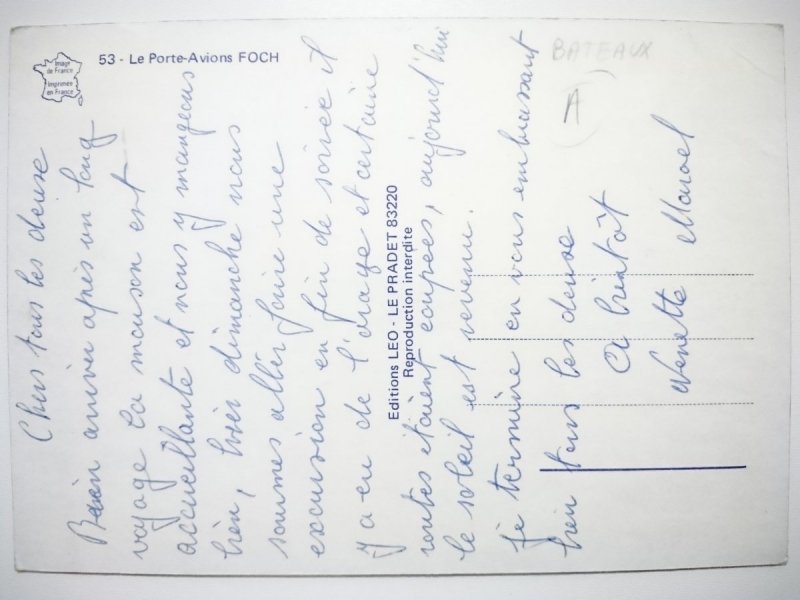 Image
de France
Imprimée
en France
53 - Le Porte-Avions FOCH
BATEAUX
A
Editions LEO - LE PRADET 83220
Reproduction interdite
Chers tous les deuxe
Bien arriver après un long
voyage la maison est
accueillante et nous y mangeons
bien, hier dimanche nous
sommes aller faire une
excursion en fin de soirée il
y a eu de l'orage et certaine
routes étaient coupées, aujourd'hui
le soleil est revenu.
je termine en vous embrassant
bien tous les deuxe
A bientôt
Nenette Marcel